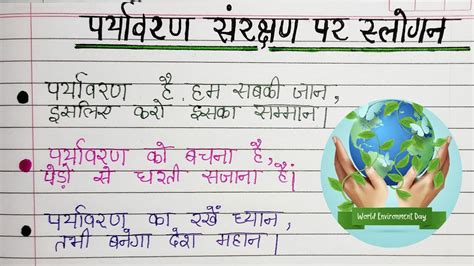 पर्यावरण संरक्षण पर स्लोगन
पर्यावरण है हम सबकी जान,
इसलिए करो इसका सम्मान।
पर्यावरण को बचना है,
पेड़ों से धरती सजाना है।
पर्यावरण का रखें ध्यान,
तभी बनेगा देश महान।
World Environment Day